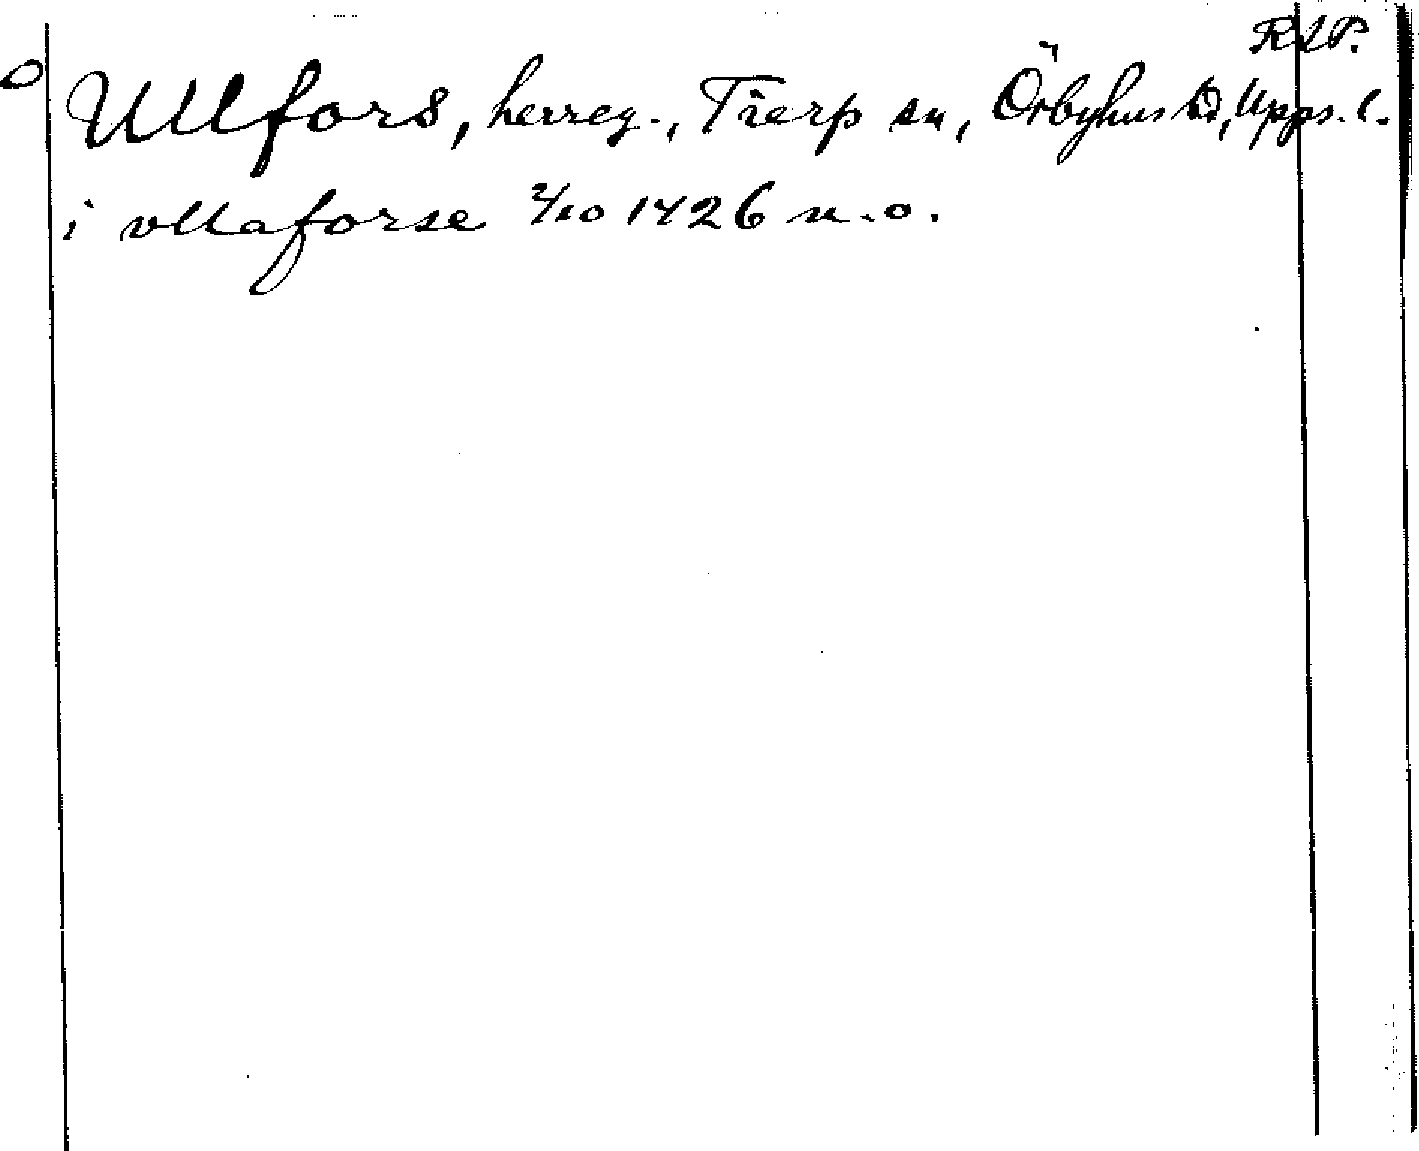 RAP.
Ullfors, herreg., Tierp sn, Örbyhus hd, Upps. l.
i vllaforse 2/10 1426 n.o.